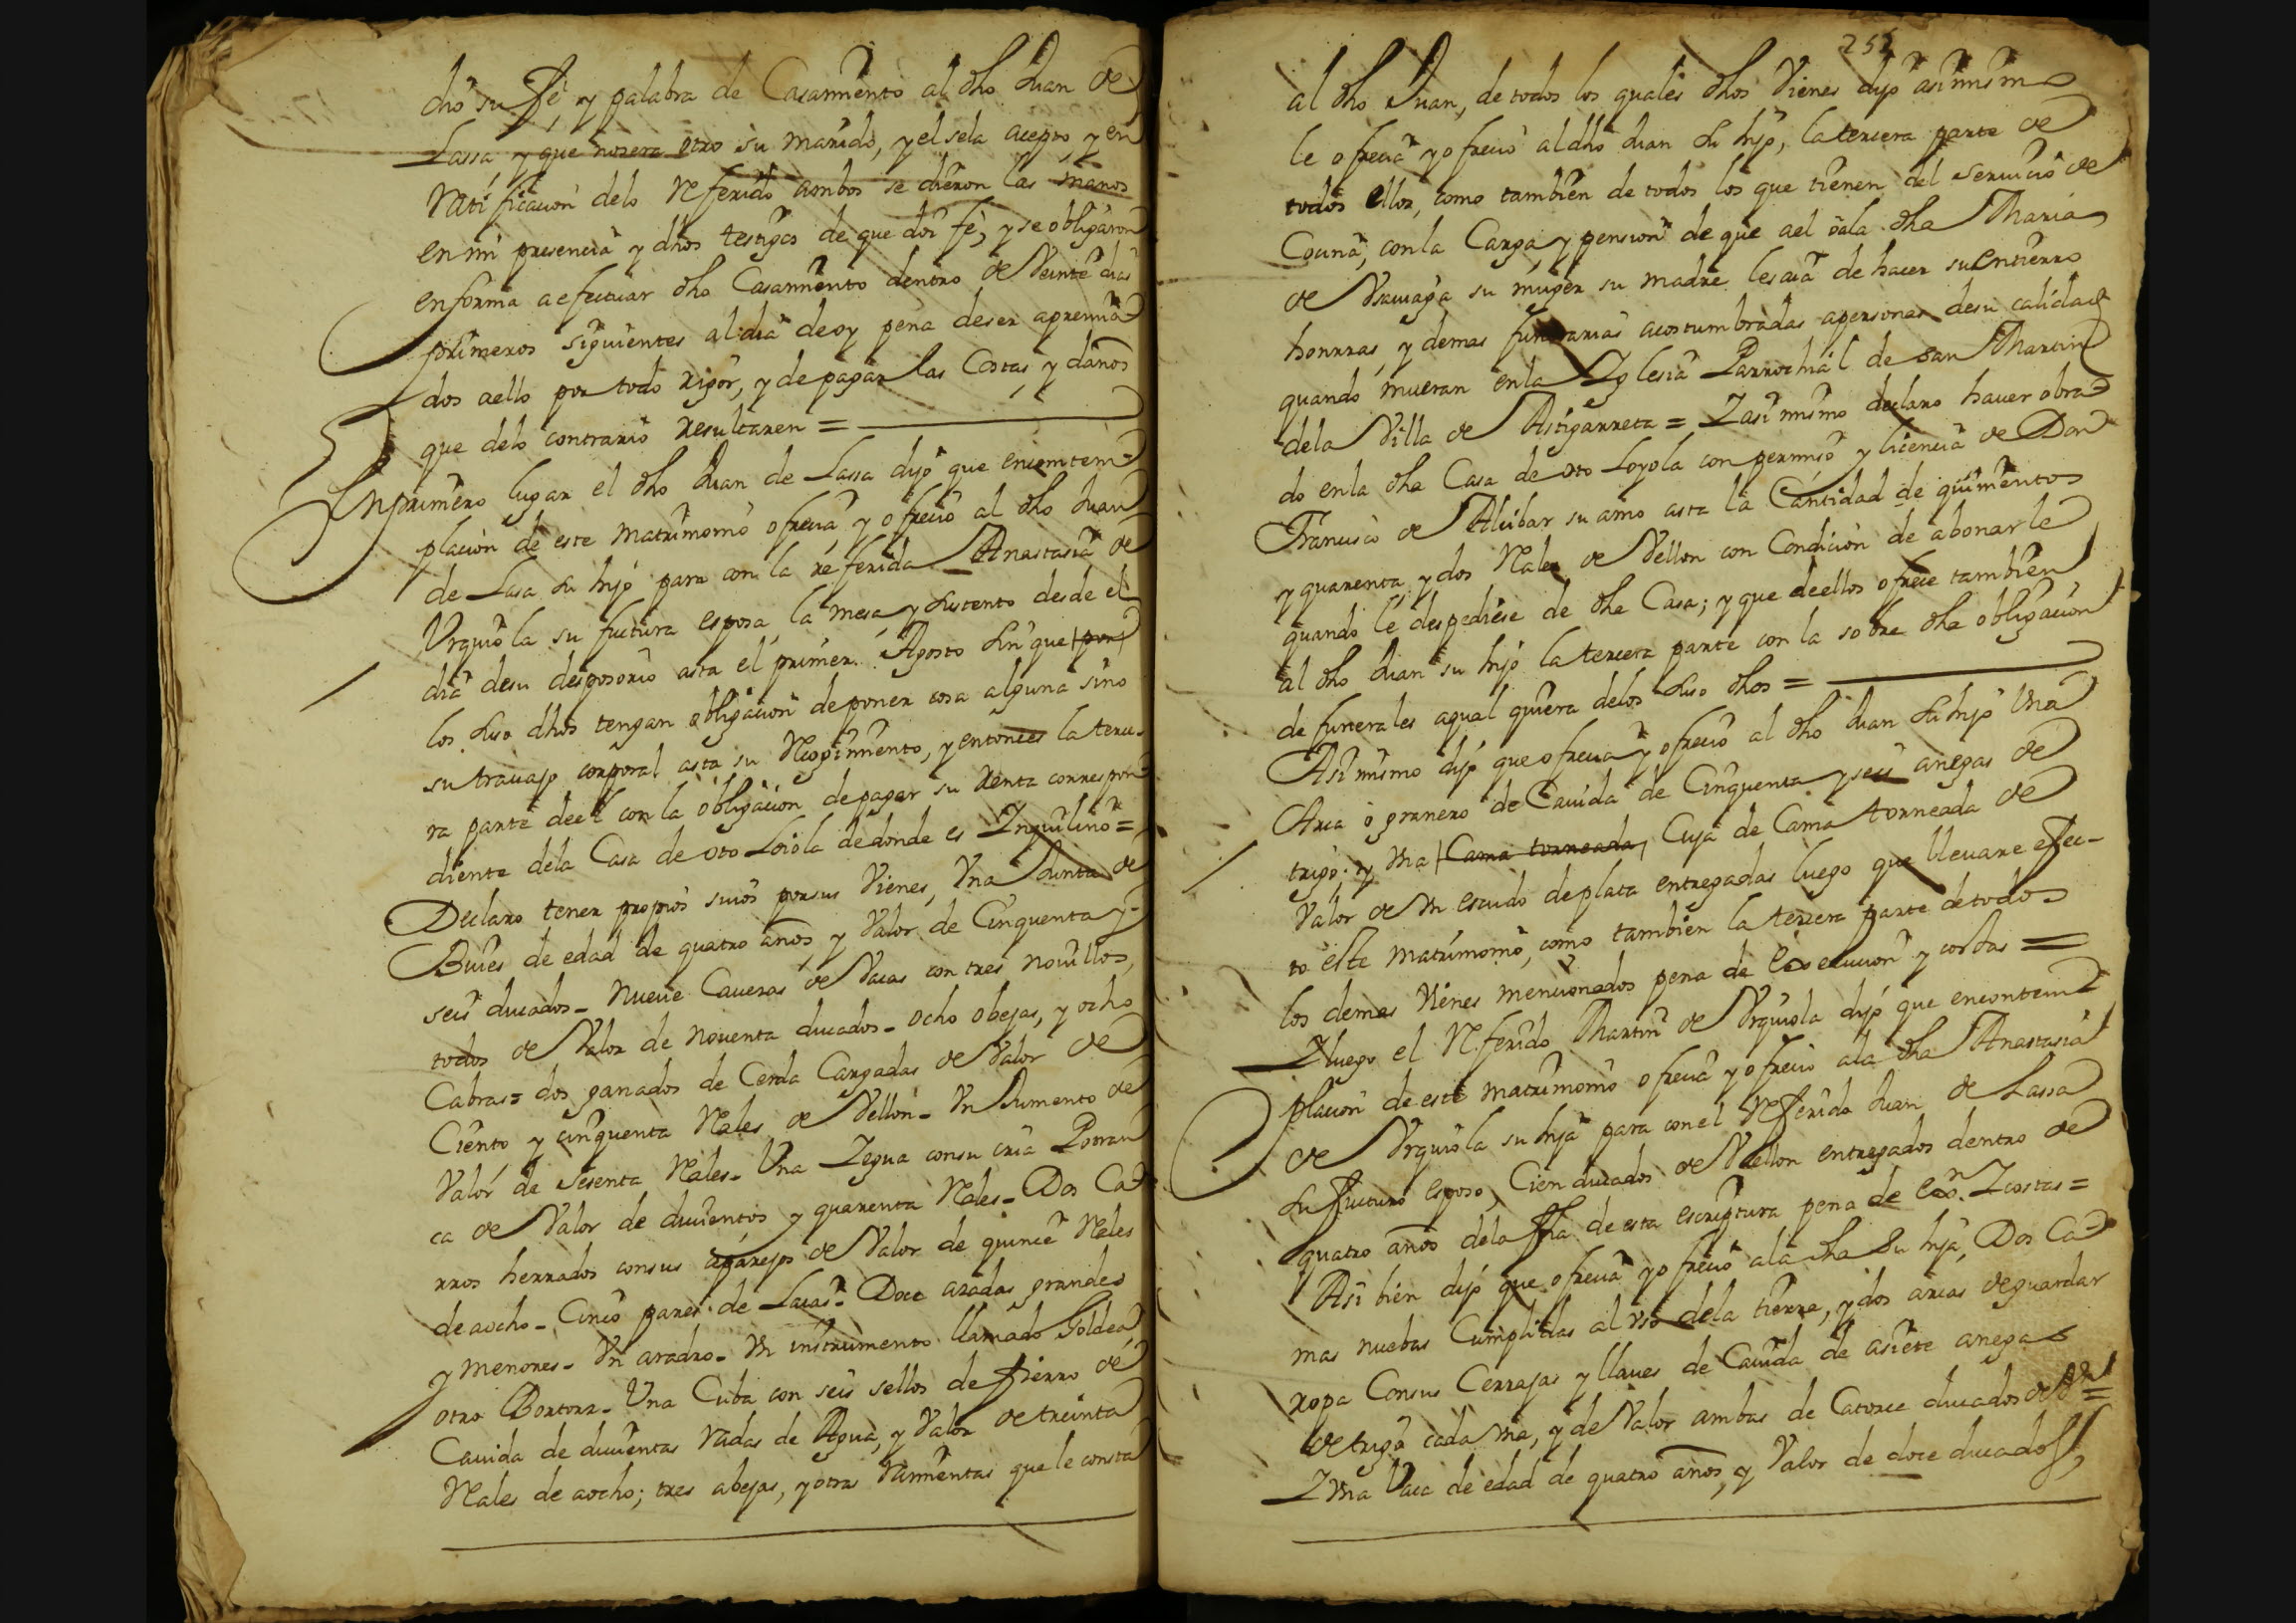 dho su Fe, y palabra de Casamiento al dho Juan de
Lassa, y que no sera otro su marido, y el se la acepto, y en
Ratificacion delo Referido ambos se dieron las manos
en mi presencia y dhos testigos de que doi fe, y se obligaron
en forma a efectuar dho Casamiento dentro de Veinte dias
primeros siguientes al dia de oy pena de ser apremia
dos a ello por todo rigor, y de pagar las Costas y daños
que delo contrario resultaren =
En primero lugar el dho Juan de Lassa dijo que en contem
placion de este matrimonio ofrecia, y ofrecio al dho Juan
de Lasa su hijo para con la referida Anastasia de
Vrquiola su futura esposa, la mesa y sustento desde el
dia desu desposorio asta el primer Agosto sin que (por)
los suso dhos tengan obligacion de poner cosa alguna sino
su travajo corporal asta su Recogimiento, y entonces la terce-
ra parte de el con la obligacion de pagar su renta correspon
diente dela Casa de oto Loiola de donde es Inquilino =
Declaro tener propios suios por sus Vienes, Vna Junta de
Buies de edad de quatro años, y Valor de Cinquenta y
seis ducados - Nueve Caveras de Vacas con tres novillos,
todos de Valor de noventa ducados - ocho obejas, y ocho
Cabras = dos ganados de Cerda Cargadas de Valor de
Ciento y cinquenta Rales de Vellon - Vn Jumento de
Valor de sesenta Rales - Vna Yegua con su cria Potran
ca de Valor de ducientos y quarenta Rales - Dos Ca
rros herrados con sus aparejos de Valor de quince Rales
de aocho - Cinco pares de Laias - Doce azadas grandes
y menores - Vn aradro - Vn instrumento llamado Goldea,
otro Bortorr - Vna Cuba con seis sellos de fierro de
Cavida de ducientas radas de Agua, y Valor de treinta
Rales de aocho; tres abejas, y otras erramientas que le consta
252
al dho Juan, de todos los quales dhos Vienes dijo asimismo
le ofrecia y ofrecio al dho Juan su hijo, la tercera parte de
todos ellos, como tambien de todos los que tienen del servicio de
Cocina, con la Carga y pension de que a el o a la dha Maria
de Vsaviaga su muger su madre les aia de hacer su entierro
honrras, y demas funerarias acostumbradas a personas desu calidad
quando mueran en la Yglesia Parrochial de san Martin
dela Villa de Astigarreta = Y asimismo declaro haver obra
do en la dha Casa de oto Loyola con permiso y licencia de Don
Francisco de Alcibar su amo asta la Cantidad de quinientos
y quarenta y dos Rales de Vellon con Condicion de abonarle
quando le despediese de dha Casa; y que de ellos ofrece tambien
al dho Juan su hijo la tercera parte con la sobre dha obligacion
de funerales a qual quiera delos suso dhos =
Asi mismo dijo que ofrecia y ofrecio al dho Juan su hijo Vna
Arca o granero de Cavida de Cinquenta y seis anegas de
trigo: y Vna (Cama torneada) Cuja de Cama torneada de
Valor de Vn escudo de plata entregadas luego que llevare efec-
to este matrimonio, como tambien la tercera parte de todos
los demas Vienes mencionados pena de execucion y costas =
Y luego el Referido Martin de Vrquiola dijo que en contem
placion de este matrimonio ofrecia y ofrecio a la dha Anastasia
de Vrquiola su hija para con el Referido Juan de Lassa
su futuro esposo, Cien ducados de Vellon entregados dentro de
quatro años dela fha de esta escriptura pena de exon. Y costas =
Asi bien dijo que ofrecia y ofrecio a la dha su hija, Dos Ca
mas nuebas Cumplidas al vso dela tierra, y dos arcas de guardar
ropa Con sus Cerrajas y llaves de Cavida de asiete anegas
de trigo cada vna, y de Valor ambas de Catorce ducados de Vn =
Y Vna Vaca de edad de quatro años, y Valor de doce ducados,